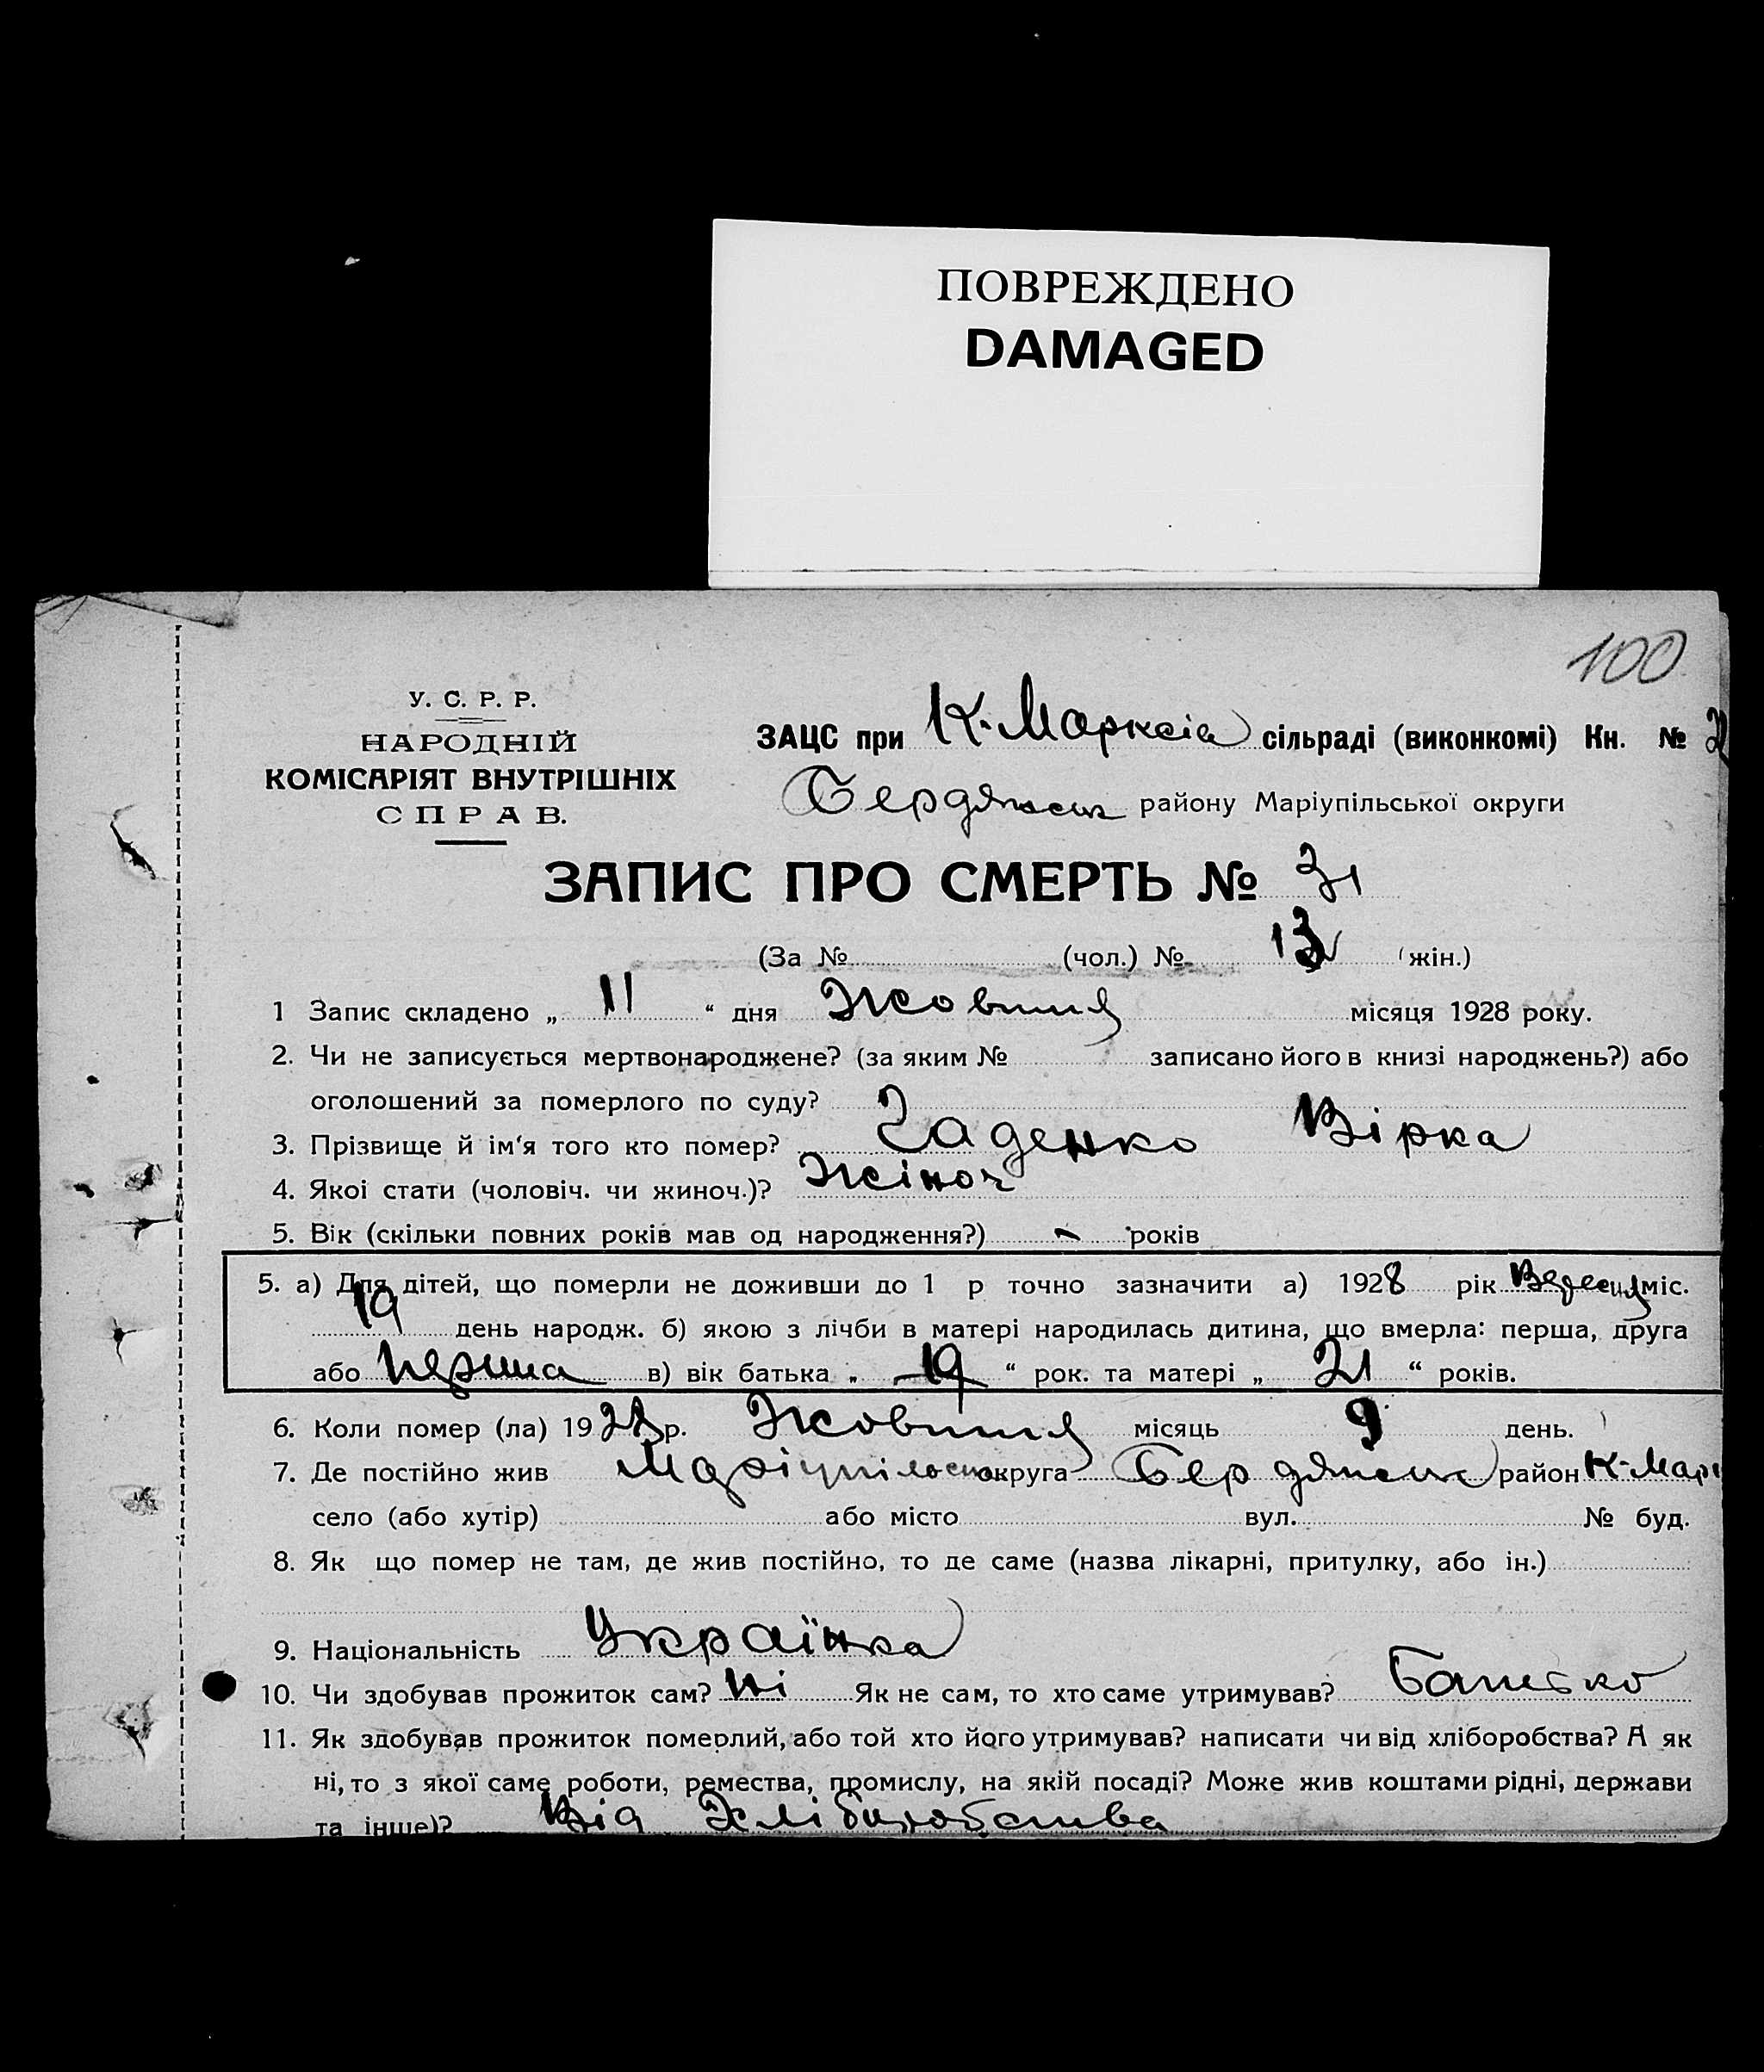 ПОВРЕЖДЕНО
DAMAGED
100
У. С. Р. Р.
НАРОДНІЙ
КОМІСАРІЯТ ВНУТРІШНІХ
СПРАВ.
ЗАЦС при К-Марксіа сільраді (виконкомі) Кн. № 2
Бердянськ району Маріупільської округи
ЗАПИС ПРО СМЕРТЬ № 31
(За № (чол.) № 13 (жін.)
1 Запис складено „ 11 “ дня Жовтня місяця 1928 року.
2. Чи не записується мертвонароджене? (за яким № записано його в книзі народжень?) або
оголошений за померлого по суду?
3. Прізвище й ім‘я того кто помер? Гаденко Вірка
4. Якоі стати (чоловіч. чи жиноч.)? Жіноч
5. Вік (скільки повних років мав од народження?) - років
5. а) Для дітей, що померли не доживши до 1 р точно зазначити а) 1928 рік Вересня міс.
19 день народж. б) якою з лічби в матері народилась дитина, що вмерла: перша, друга
або перша в) вік батька „ 19 “ рок. та матері „ 21 “ років.
6. Коли помер (ла) 1928 р. Жовтня місяць 9 день.
7. Де постійно жив Маріупільськ округа Бердянськ район К-Марк
село (або хутір) або місто вул. № буд.
8. Як що помер не там, де жив постійно, то де саме (назва лікарні, притулку, або ін.)
9. Національність Українка
10. Чи здобував прожиток сам? Ні Як не сам, то хто саме утримував? Батько
11. Як здобував прожиток померлий, або той хто його утримував? написати чи від хліборобства? А як
ні, то з якої саме роботи, ремества, промислу, на якій посаді? Може жив коштами рідні, держави
та інше)? Від Хліборобства